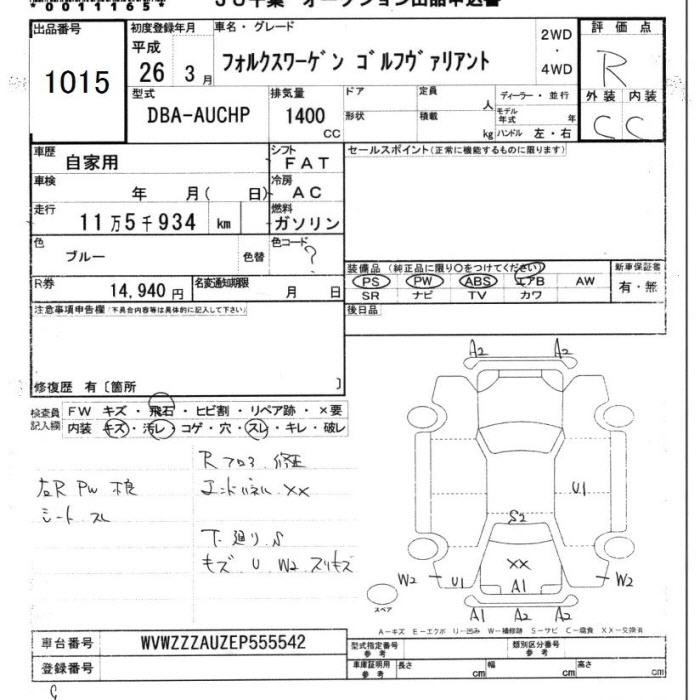 *00111165*
JU千葉 オークション出品申込書
出品番号
1015
初度登録年月
平成
26 3月
車名・グレード
フォルクスワーゲン ゴルフヴァリアント
2WD
・
4WD
評価点
R
外装 内装
C C
型式
DBA-AUCHP
排気量
1400
cc
ドア 定員 人
形状 積載 kg
ディーラー・並行
モデル年式 年
ハンドル 左・右
車歴
自家用
シフト
FAT
セールスポイント(正常に機能するものに限ります)
車検
年 月( 日)
冷房
AC
走行
11万5千934 km
燃料
ガソリン
色
ブルー
色替
色コード
?
装備品(純正品に限り○をつけてください)
PS PW ABS エアB AW
SR ナビ TV カワ
新車保証書
有・無
R券
14,940円
名変通知期限
月 日
後日品
注意事項申告欄(不具合内容等は具体的に記入して下さい)
修復歴 有〔箇所 〕
検査員記入欄
FW キズ・飛石・ヒビ割・リペア跡・×要
内装 キズ・汚レ・コゲ・穴・スレ・キレ・破レ
Rフロア 修正
エンドパネル ××
左R PW 不良
シート スレ
下廻り S
キズ U W2 スリキズ
A2 A2
U1
S2
××
W2 U1 A1 W2
A1 A2 A2
スペア
A−キズ E−エクボ U−凹み W−補修跡 S−サビ C−腐食 ××−交換済
車台番号
WVWZZZAUZEP555542
登録番号
型式指定番号
参考
類別区分番号
参考
車庫証明用
参考
長さ cm
幅 cm
高さ cm